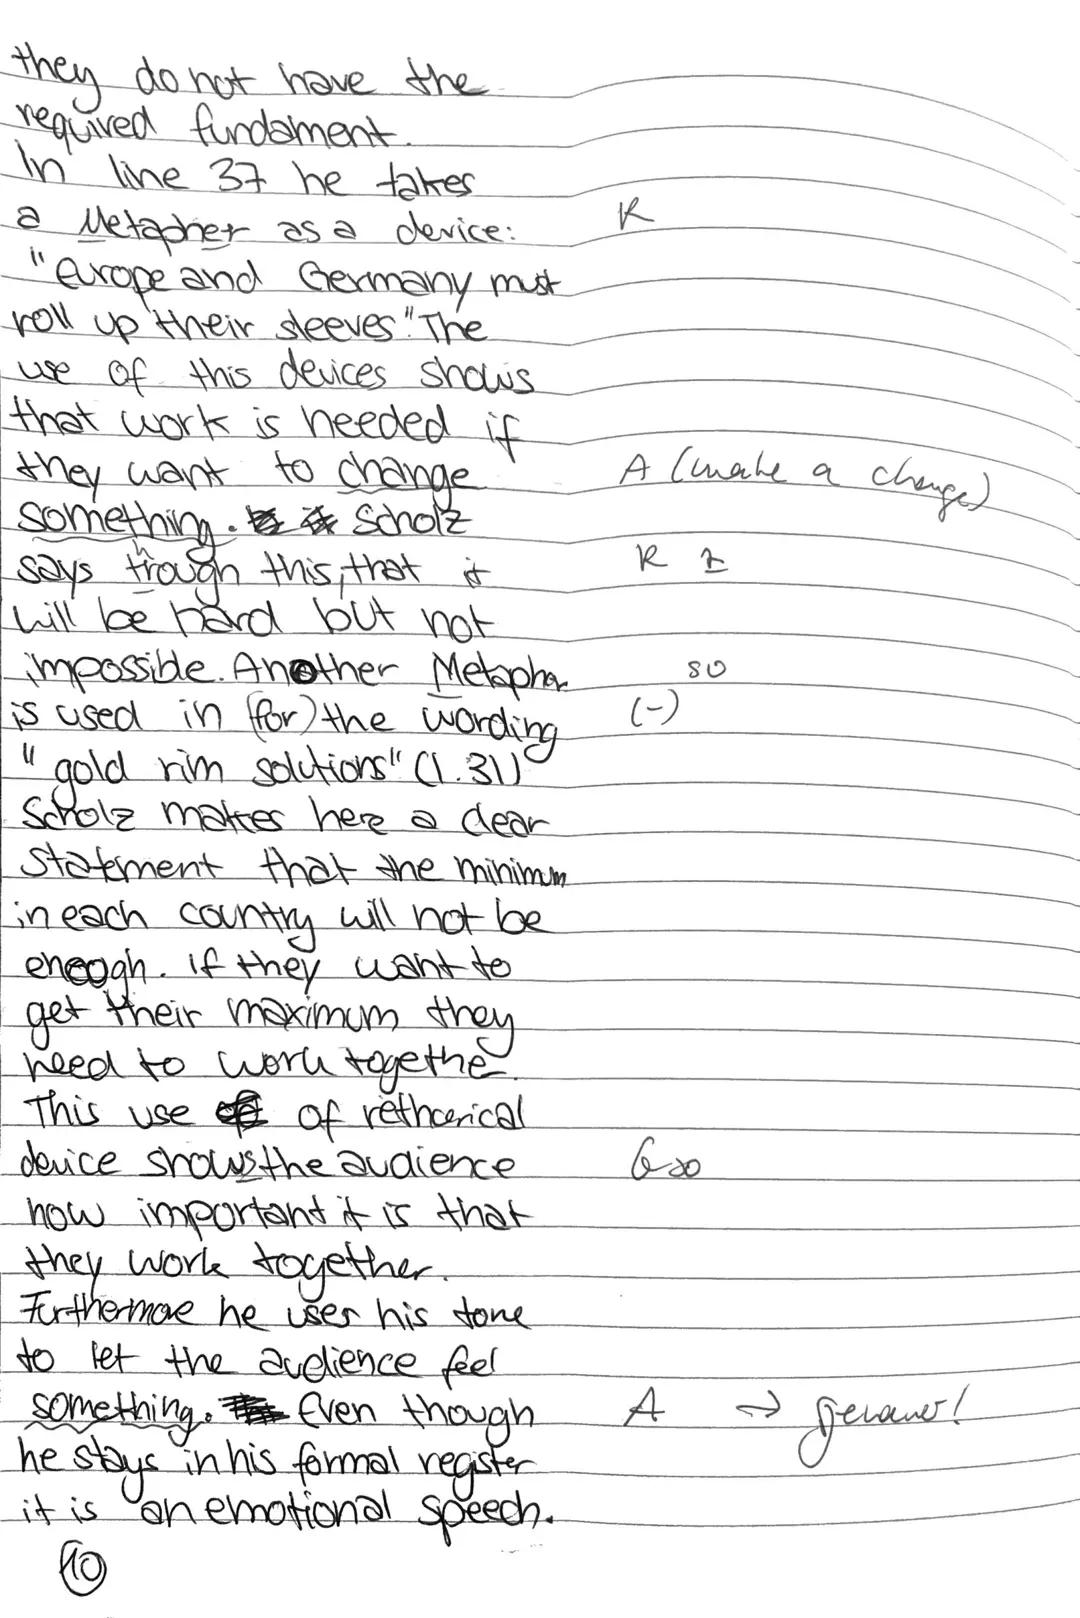 they do not have the
required fundament.
In line 37 he takes
a Metapher as a device: R
"Europe and Germany must
roll up their sleeves". The
use of this devices shows
that work is needed if
they want to change A (make a change)
something. Scholz
says trough this, that it R Z
will be hard but not
impossible. Another Metapher so
is used in (for) the wording (-)
"gold rim solutions" (l. 31)
Scholz makes here a clear
statement that the minimum
in each country will not be
enough. If they want to
get their maximum they
need to work togethe
This use of
device shows the audience
how important it is that
they work together.
Furthermore he uses his tone
to let the audience feel
something. Even though A → genauer!
he stays in his formal register
it is an emotional speech.
10